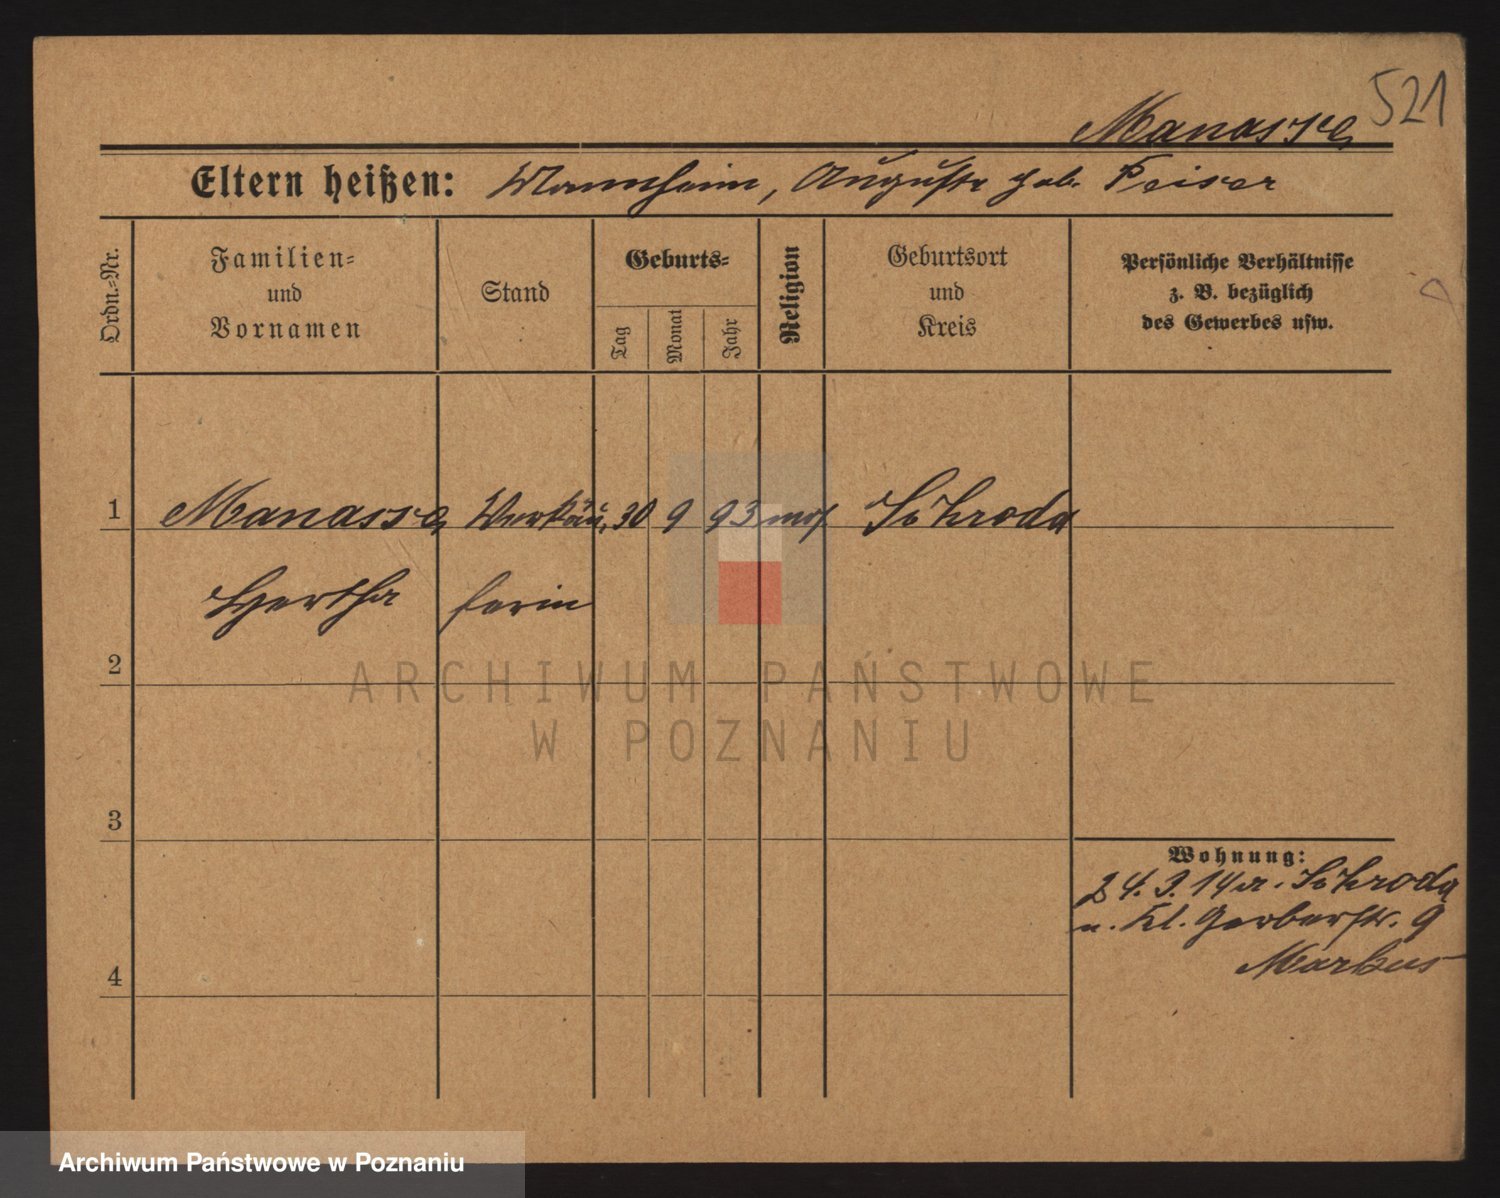 521
Manasse
Eltern heißen: Mannheim, Auguste geb. Peiser
Ordn.-Nr.
Familien-
und
Vornamen
Stand
Geburts-
Tag
Monat
Jahr
Religion
Geburtsort
und
Kreis
Persönliche Verhältnisse
z. B. bezüglich
des Gewerbes usw.
1 Manasse Verkäu- 30 9 93 mos. Schroda
Hertha ferin
2
3
4
Wohnung:
24. 3. 14 a. Schroda
n. Kl. Gerberstr. 9
Markus
ARCHIWUM PAŃSTWOWE
W POZNANIU
Archiwum Państwowe w Poznaniu